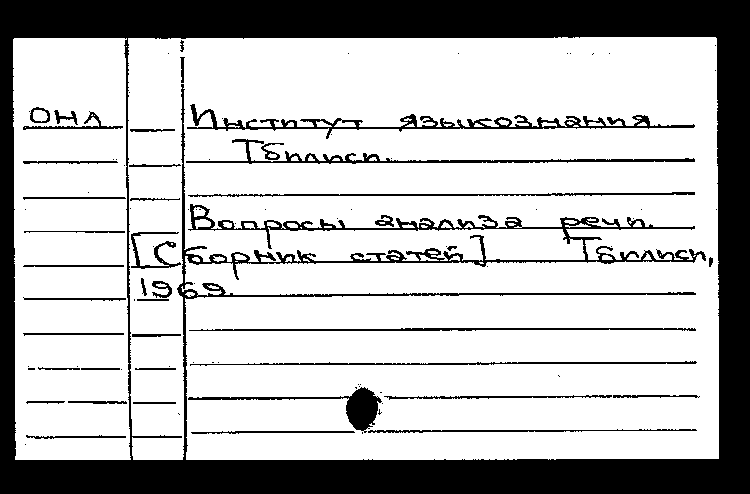 ОНЛ Институт языкознания.
Тбилиси.
Вопросы анализа речи.
[Сборник статей]. Тбилиси,
1969.